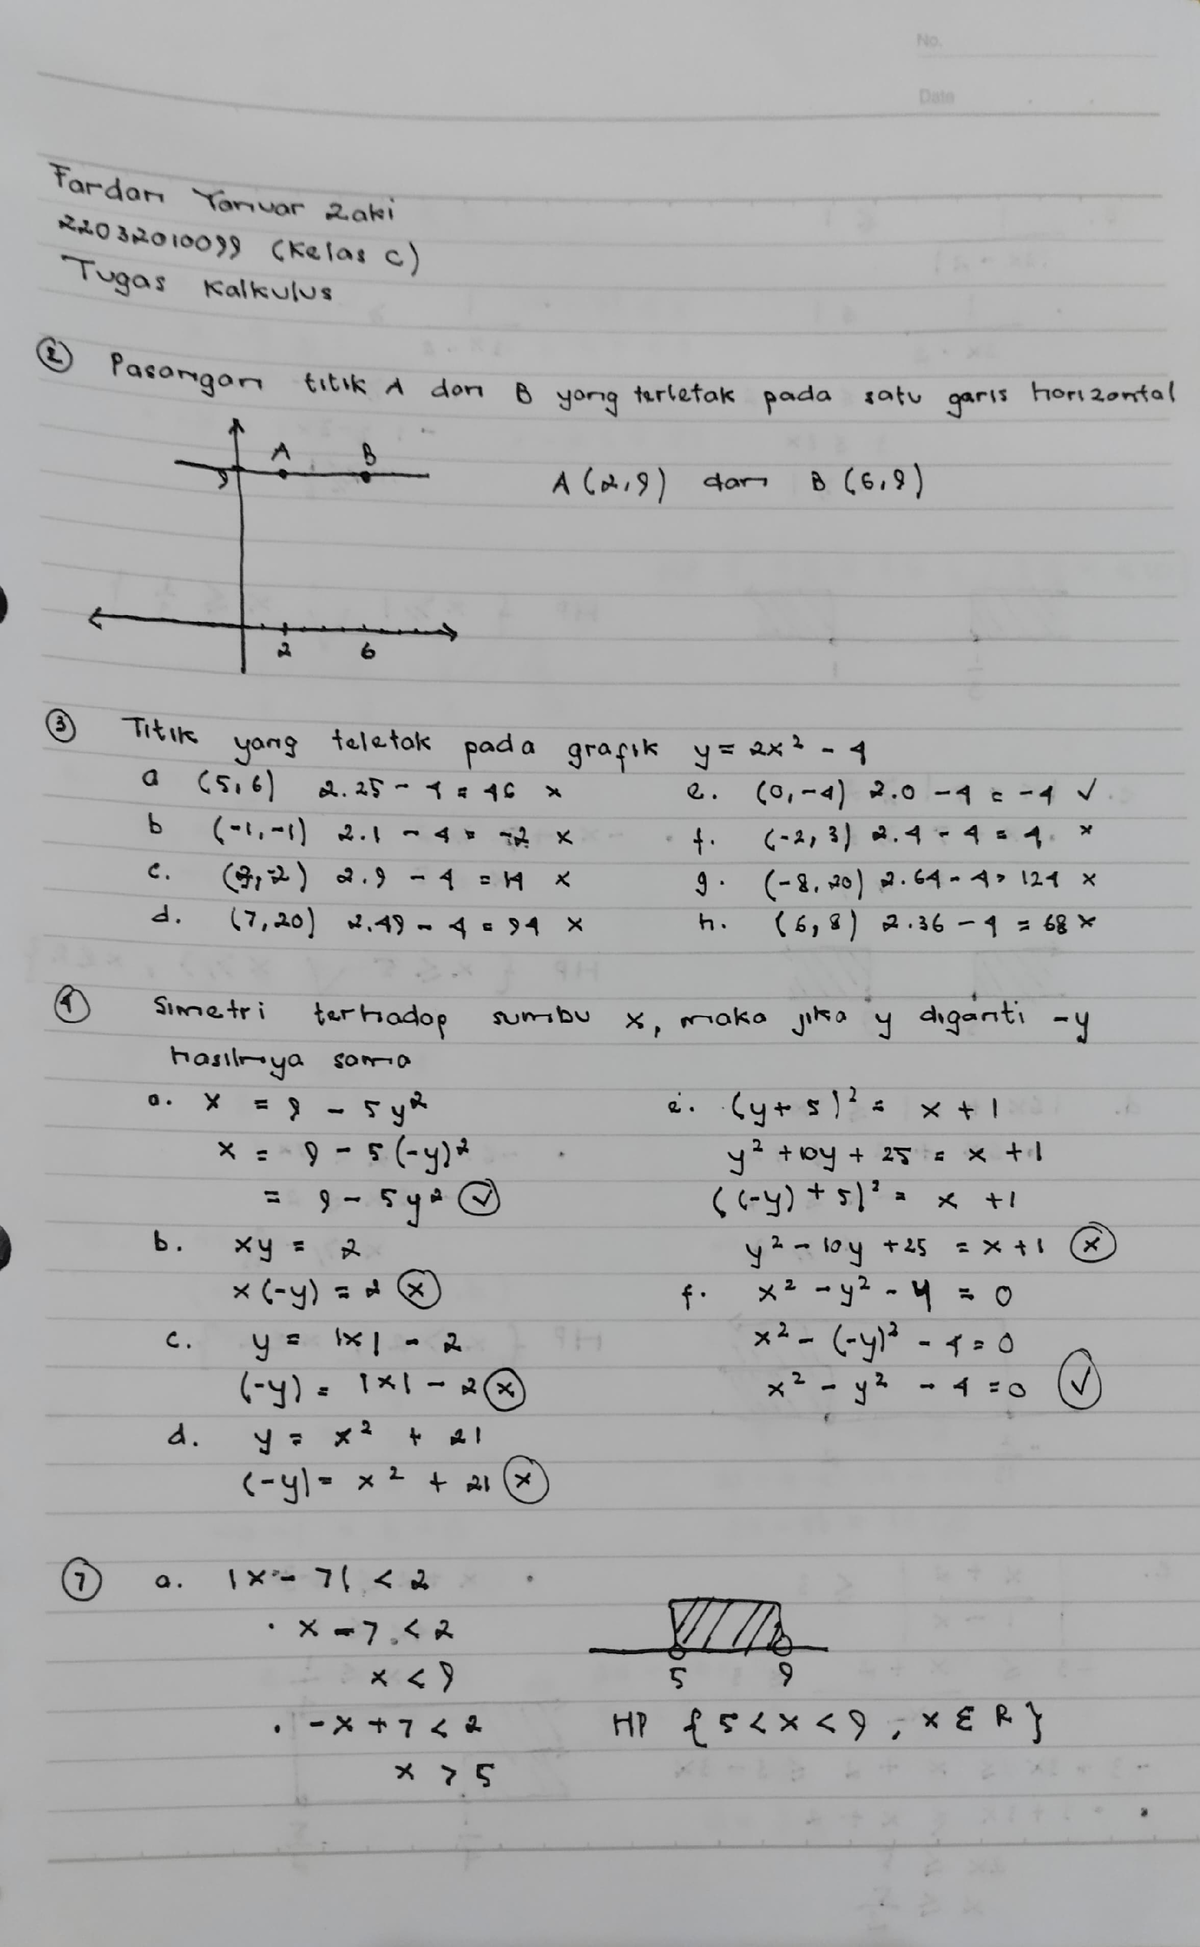 No.
Date
Fardan Yanuar Zaki
22032010099 (Kelas C)
Tugas Kalkulus
② Pasangan titik A dan B yang terletak pada satu garis horizontal
A B
9
A (2,9) dan B (6,9)
2 6
③ Titik yang teletak pada grafik y = 2x² - 4
a (5,6) 2.25 - 4 = 46 x
e. (0,-4) 2.0 - 4 = -4 ✓
b (-1,-1) 2.1 - 4 = -2 x
f. (-2,3) 2.4 - 4 = 4 x
c. (3,-2) 2.9 - 4 = 14 x
g. (-8,20) 2.64 - 4 = 124 x
d. (7,20) 2.49 - 4 = 94 x
h. (6,8) 2.36 - 4 = 68 x
④ Simetri terhadap sumbu x, maka jika y diganti -y
hasilnya sama
a. x = 9 - 5y²
x = 9 - 5(-y)²
= 9 - 5y² ✓
b. xy = 2
x(-y) = 2 x
c. y = |x| - 2
(-y) = |x| - 2 x
d. y = x² + 21
(-y) = x² + 21 x
e. (y + 5)² = x + 1
y² + 10y + 25 = x + 1
((-y) + 5)² = x + 1
y² - 10y + 25 = x + 1 x
f. x² - y² - 4 = 0
x² - (-y)² - 4 = 0
x² - y² - 4 = 0 ✓
⑦ a. |x - 7| < 2
· x - 7 < 2
x < 9
· -x + 7 < 2
x > 5
5 9
HP {5 < x < 9, x ∈ R}